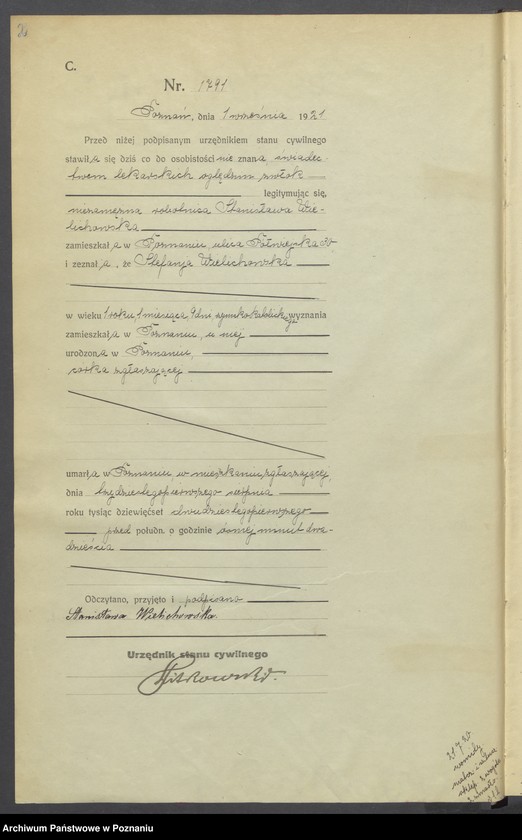 C.
Nr. 1791
Poznań, dnia 1 września 1921
Przed niżej podpisanym urzędnikiem stanu cywilnego
stawiła się dziś co do osobistości nie znana, świadec-
twem lekarskich oględzin zwłok
legitymując się,
niezamężna robotnica Stanisława Wie-
lichowska
zamieszkała w Poznaniu, ulica Półwiejska 30
i zeznała, że Stefanja Wielichowska
w wieku 1 roku, 1 miesiąca, 9 dni, rzymsko katolickiego wyznania
zamieszkała w Poznaniu, u niej
urodzona w Poznaniu,
córka zgłaszającej
umarła w Poznaniu, w mieszkaniu zgłaszającej,
dnia trzydziestegopierwszego sierpnia
roku tysiąc dziewięćset dwudziestegopierwszego
przed połudn. o godzinie ósmej minut dwa-
dzieścia
Odczytano, przyjęto i podpisano
Stanisława Wielichowska
Urzędnik stanu cywilnego
Archiwum Państwowe w Poznaniu